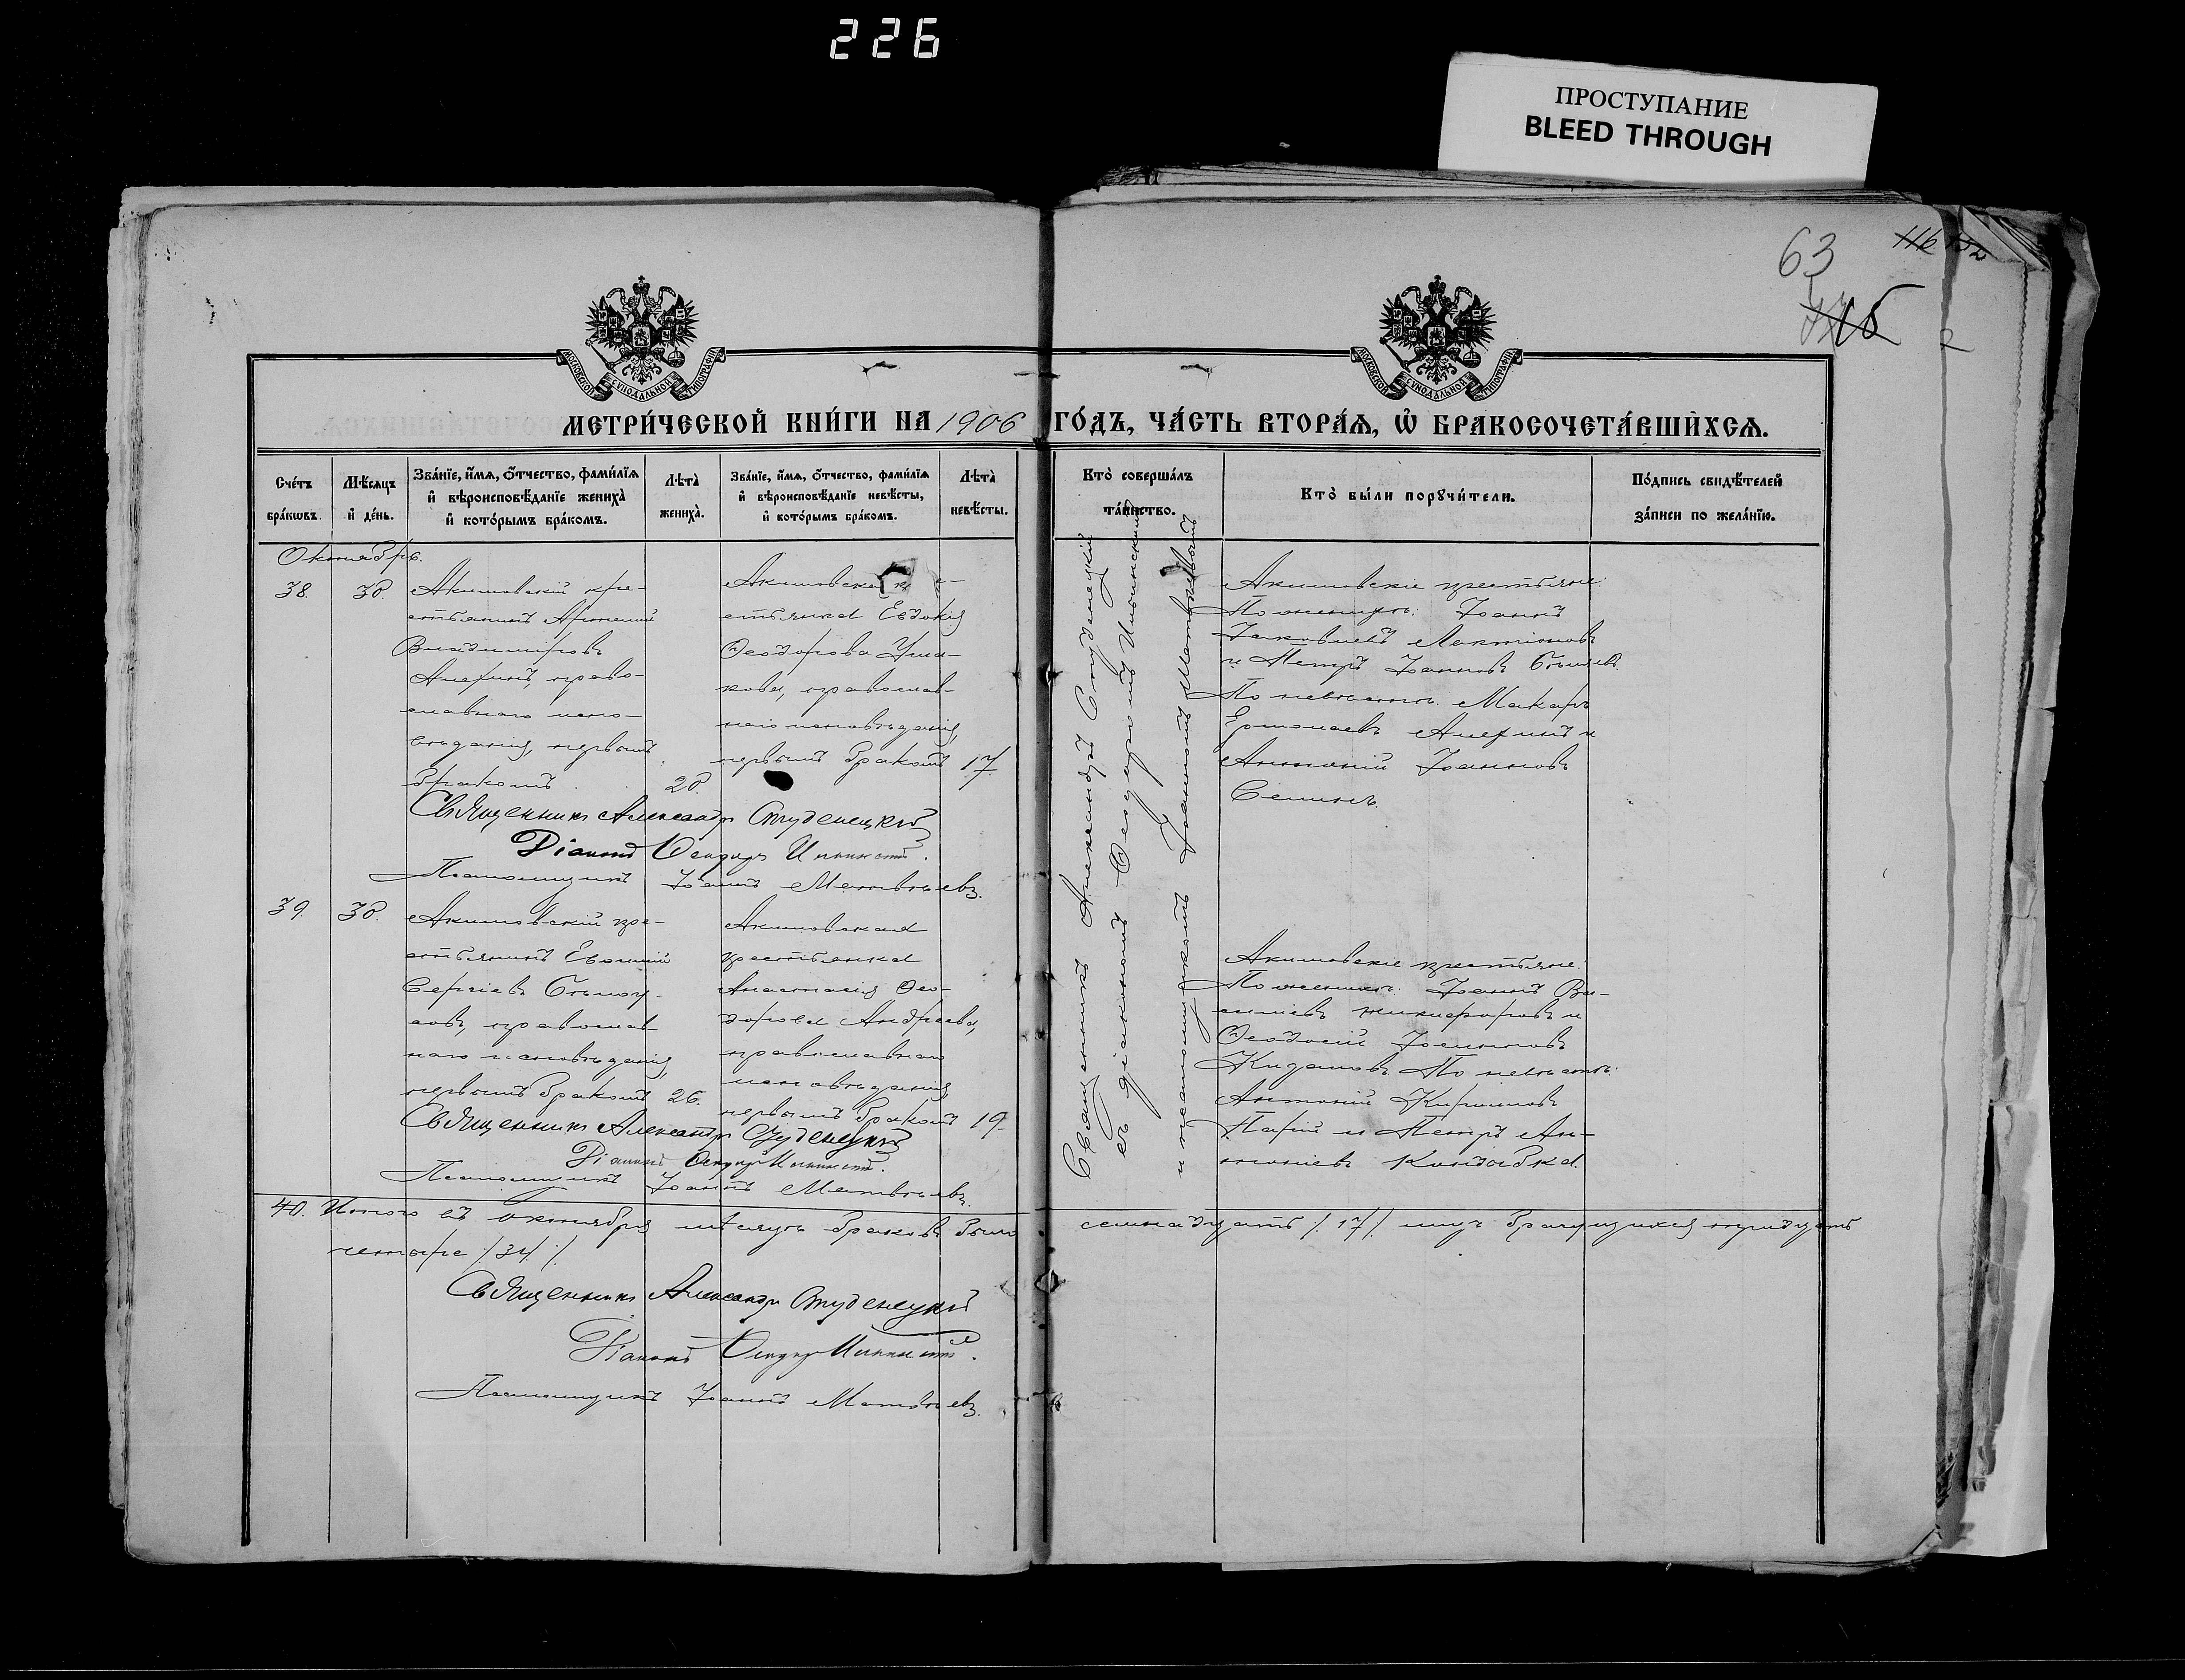 226
ПРОСТУПАНИЕ
BLEED THROUGH
63
116
МОСКОВСКОЙ СѴНОДАЛЬНОЙ ТИПОГРАФІИ
МОСКОВСКОЙ СѴНОДАЛЬНОЙ ТИПОГРАФІИ
МЕТРИ́ЧЕСКОЙ КНИ́ГИ НА 1906 ГО́ДЪ, ЧА́СТЬ ВТОРА́Я, Ѿ БРАКОСОЧЕТА́ВШИХСЯ.
Сче́тъ бра́кѡвъ.
Мѣ́сяцъ и де́нь.
Зва́нїе, и́мя, ѻ́тчество, фами́лїя и вѣроисповѣ́данїе жениха̀ и кото́рымъ бра́комъ.
Лѣта̀ жениха̀.
Зва́нїе, и́мя, ѻ́тчество, фами́лїя и вѣроисповѣ́данїе невѣ́сты, и кото́рымъ бра́комъ.
Лѣта̀ невѣ́сты.
Кто̀ соверша́лъ та́инство.
Кто̀ бы́ли порꙋчи́тели.
По́дпись свидѣ́телей за́писи по жела́нїю.
Октябрь.
38.
30.
Акимовскій кре-
стьянинъ
Владиміровъ
Алехинъ, право-
славнаго испо-
вѣданія, первымъ
бракомъ
20.
Акимовская кре-
стьянка Евдокія
Ѳеодорова Уша-
кова, православ-
наго исповѣданія,
первымъ бракомъ
17.
Священникъ Александръ Студенецкій
съ діакономъ Ѳеодоромъ Ильинскимъ
и псаломщикомъ Іоанномъ Матвѣевымъ
Акимовскіе крестьяне:
По женихѣ: Іоаннъ
Іаковлевъ Локтіоновъ
и Петръ Іоанновъ
По невѣстѣ: Макаръ
Ермолаевъ Алехинъ и
Іоанновъ
Семинъ.
Священникъ Александръ Студенецкій
Діаконъ Ѳеодоръ Ильинскій.
Псаломщикъ Іоаннъ Матвѣевъ.
39.
30.
Акимовскій кре-
стьянинъ Евѳимій
Сергіевъ Бѣлоу-
совъ, православ
наго исповѣданія,
первымъ бракомъ
26.
Акимовская
крестьянка
Анастасія Ѳео-
дорова Андреева,
православнаго
исповѣданія,
первымъ бракомъ
19.
Акимовскіе крестьяне:
По женихѣ: Іоаннъ Ва-
силіевъ Никифоровъ и
Ѳеодосій
По невѣстѣ:
Антоній Кирилловъ
и Петръ Ан-
тоніевъ
Священникъ Александръ Студенецкій
Діаконъ Ѳеодоръ Ильинскій.
Псаломщикъ Іоаннъ Матвѣевъ.
40. Итого въ октябрѣ мѣсяцѣ браковъ было семнадцать /17/ лицъ брачущихся тридцать
четыре /34/.
Священникъ Александръ Студенецкій
Діаконъ Ѳеодоръ Ильинскій.
Псаломщикъ Іоаннъ Матвѣевъ.